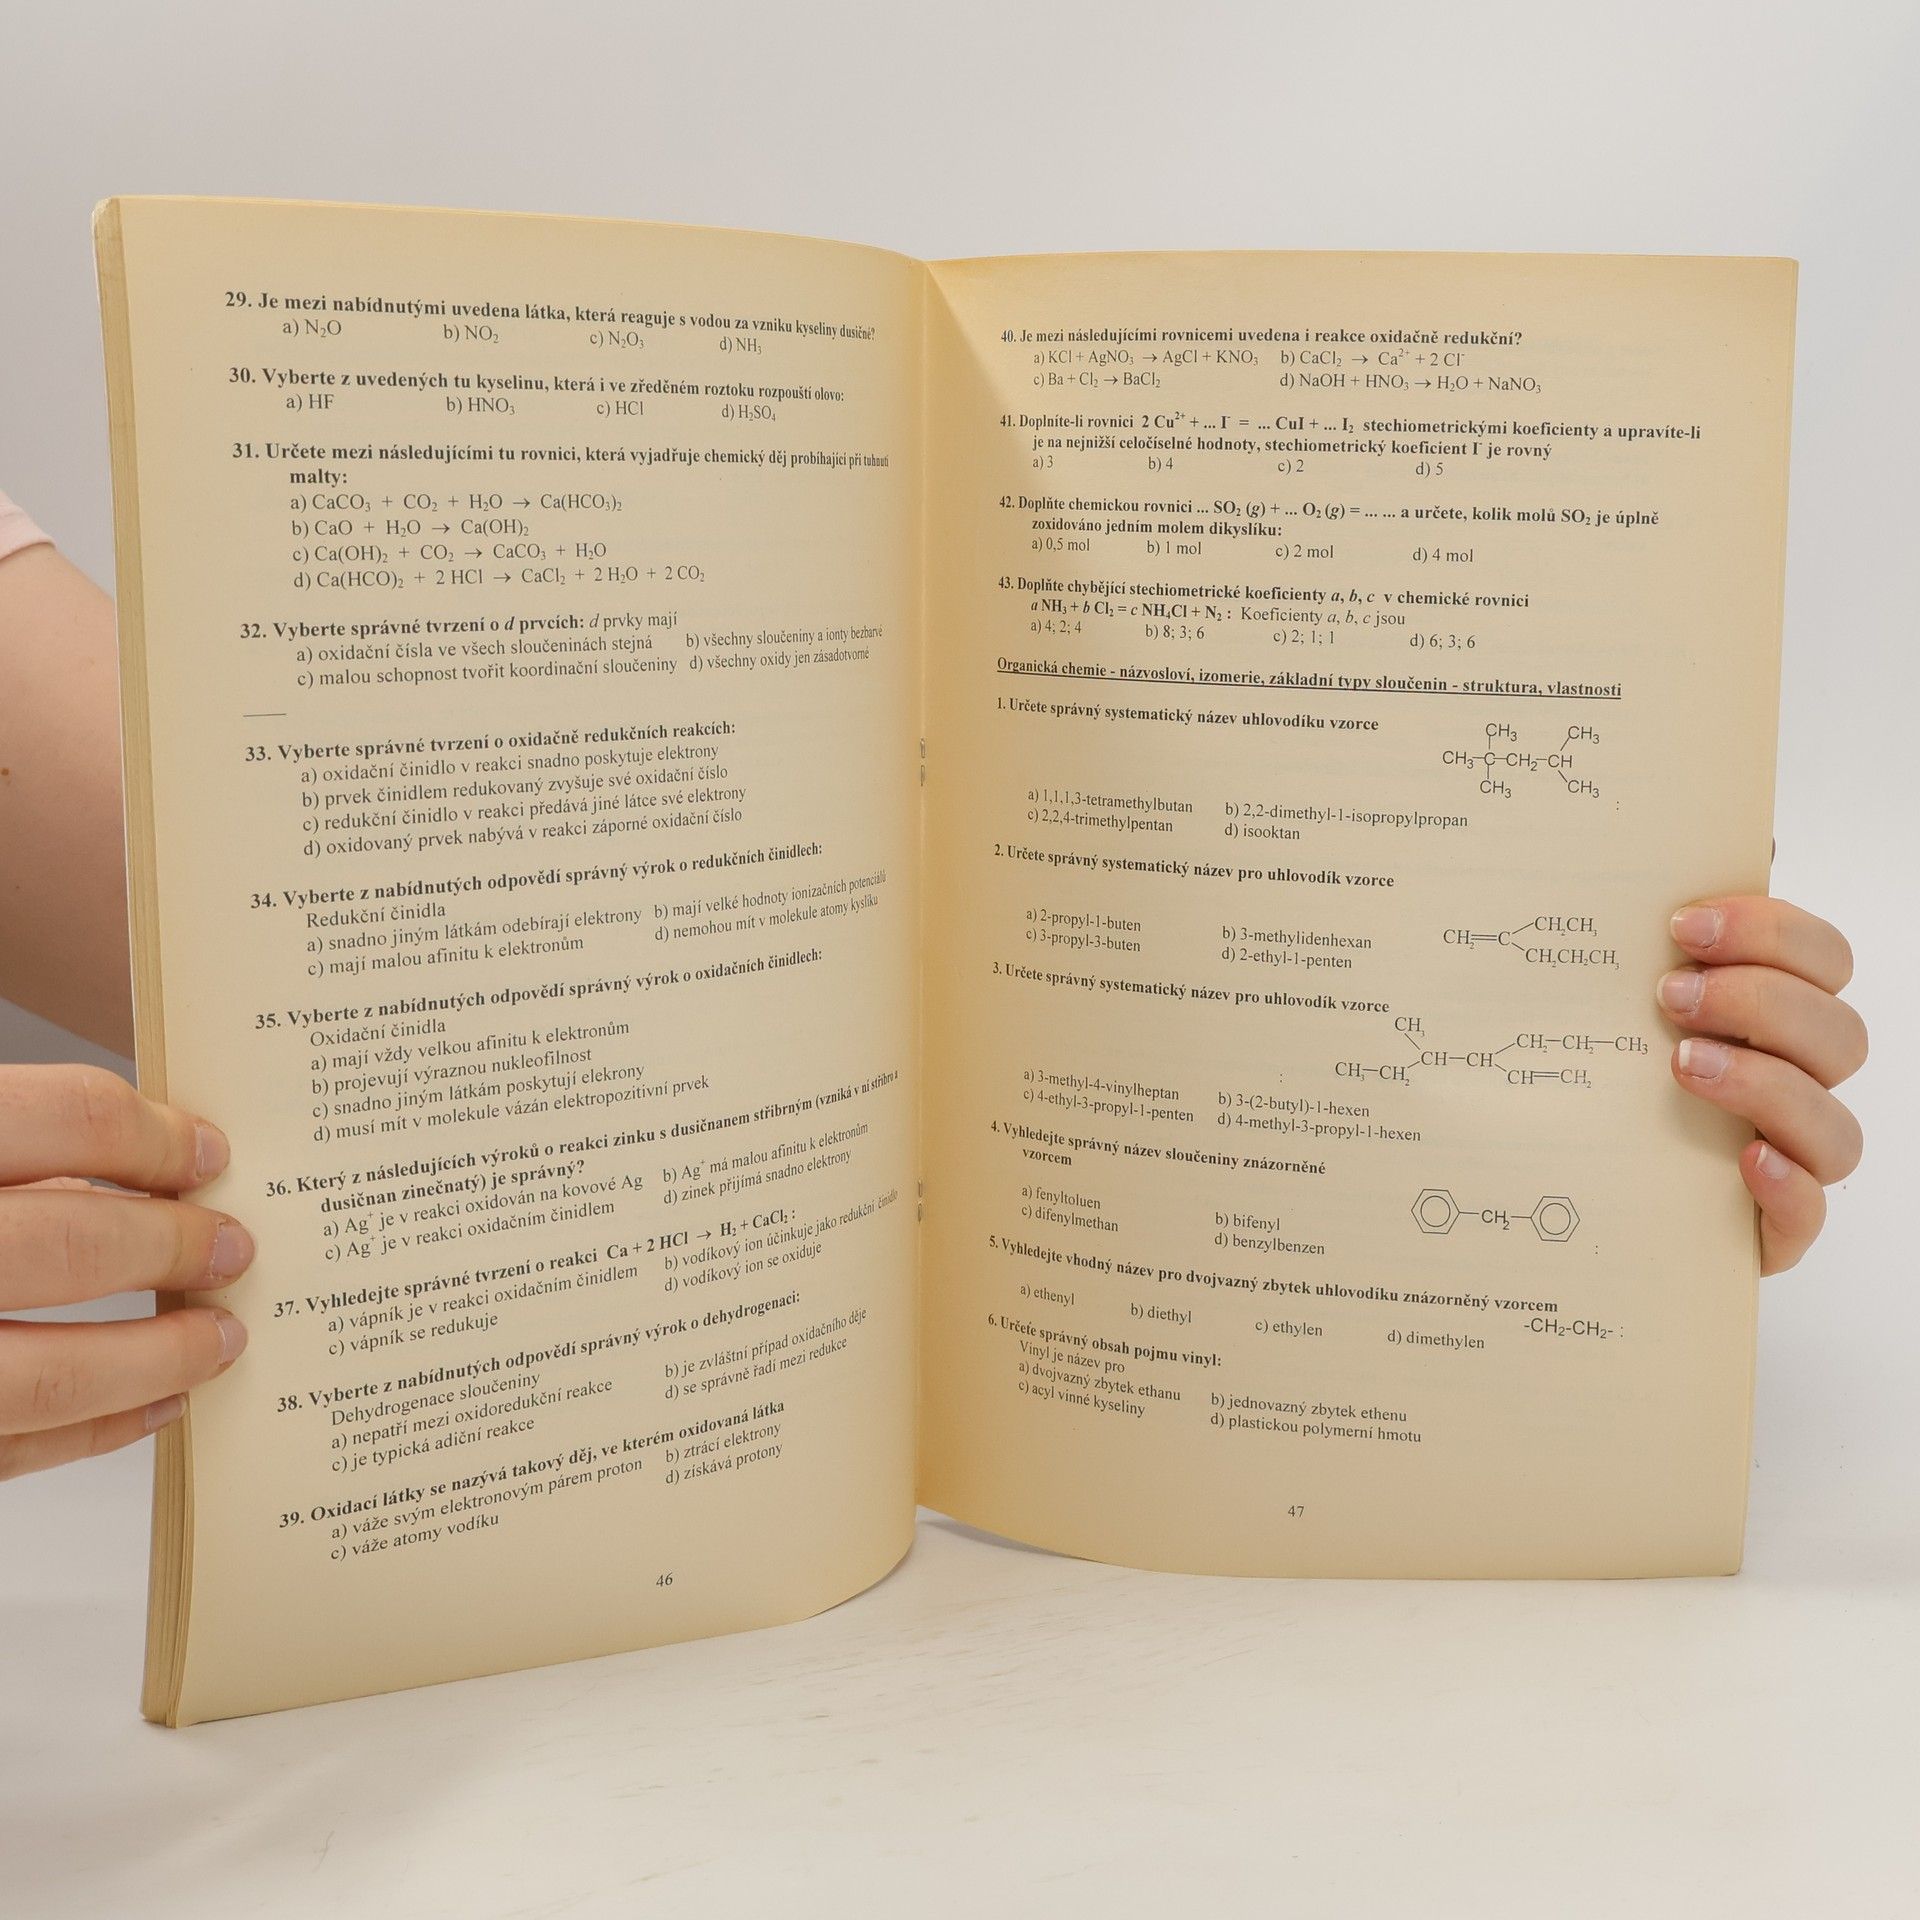 29. Je mezi nabídnutými uvedena látka, která reaguje s vodou za vzniku kyseliny dusičné?
a) N₂O b) NO₂ c) N₂O₃ d) NH₃
30. Vyberte z uvedených tu kyselinu, která i ve zředěném roztoku rozpouští olovo:
a) HF b) HNO₃ c) HCl d) H₂SO₄
31. Určete mezi následujícími tu rovnici, která vyjadřuje chemický děj probíhající při tuhnutí
malty:
a) CaCO₃ + CO₂ + H₂O → Ca(HCO₃)₂
b) CaO + H₂O → Ca(OH)₂
c) Ca(OH)₂ + CO₂ → CaCO₃ + H₂O
d) Ca(HCO)₂ + 2 HCl → CaCl₂ + 2 H₂O + 2 CO₂
32. Vyberte správné tvrzení o d prvcích: d prvky mají
a) oxidační čísla ve všech sloučeninách stejná b) všechny sloučeniny a ionty bezbarvé
c) malou schopnost tvořit koordinační sloučeniny d) všechny oxidy jen zásadotvorné
33. Vyberte správné tvrzení o oxidačně redukčních reakcích:
a) oxidační činidlo v reakci snadno poskytuje elektrony
b) prvek činidlem redukovaný zvyšuje své oxidační číslo
c) redukční činidlo v reakci předává jiné látce své elektrony
d) oxidovaný prvek nabývá v reakci záporné oxidační číslo
34. Vyberte z nabídnutých odpovědí správný výrok o redukčních činidlech:
Redukční činidla
a) snadno jiným látkám odebírají elektrony b) mají velké hodnoty ionizačních potenciálů
c) mají malou afinitu k elektronům d) nemohou mít v molekule atomy kyslíku
35. Vyberte z nabídnutých odpovědí správný výrok o oxidačních činidlech:
Oxidační činidla
a) mají vždy velkou afinitu k elektronům
b) projevují výraznou nukleofilnost
c) snadno jiným látkám poskytují elekrony
d) musí mít v molekule vázán elektropozitivní prvek
36. Který z následujících výroků o reakci zinku s dusičnanem stříbrným (vzniká v ní stříbro a
dusičnan zinečnatý) je správný?
a) Ag⁺ je v reakci oxidován na kovové Ag b) Ag⁺ má malou afinitu k elektronům
c) Ag⁺ je v reakci oxidačním činidlem d) zinek přijímá snadno elektrony
37. Vyhledejte správné tvrzení o reakci Ca + 2 HCl → H₂ + CaCl₂ :
a) vápník je v reakci oxidačním činidlem b) vodíkový ion účinkuje jako redukční činidlo
c) vápník se redukuje d) vodíkový ion se oxiduje
38. Vyberte z nabídnutých odpovědí správný výrok o dehydrogenaci:
Dehydrogenace sloučeniny
a) nepatří mezi oxidoredukční reakce b) je zvláštní případ oxidačního děje
c) je typická adiční reakce d) se správně řadí mezi redukce
39. Oxidací látky se nazývá takový děj, ve kterém oxidovaná látka
a) váže svým elektronovým párem proton b) ztrácí elektrony
c) váže atomy vodíku d) získává protony
46
40. Je mezi následujícími rovnicemi uvedena i reakce oxidačně redukční?
a) KCl + AgNO₃ → AgCl + KNO₃ b) CaCl₂ → Ca²⁺ + 2 Cl⁻
c) Ba + Cl₂ → BaCl₂ d) NaOH + HNO₃ → H₂O + NaNO₃
41. Doplníte-li rovnici 2 Cu²⁺ + ... I⁻ = ... CuI + ... I₂ stechiometrickými koeficienty a upravíte-li
je na nejnižší celočíselné hodnoty, stechiometrický koeficient I⁻ je rovný
a) 3 b) 4 c) 2 d) 5
42. Doplňte chemickou rovnici ... SO₂ (g) + ... O₂ (g) = ... ... a určete, kolik molů SO₂ je úplně
zoxidováno jedním molem dikyslíku:
a) 0,5 mol b) 1 mol c) 2 mol d) 4 mol
43. Doplňte chybějící stechiometrické koeficienty a, b, c v chemické rovnici
a NH₃ + b Cl₂ = c NH₄Cl + N₂ : Koeficienty a, b, c jsou
a) 4; 2; 4 b) 8; 3; 6 c) 2; 1; 1 d) 6; 3; 6
Organická chemie - názvosloví, izomerie, základní typy sloučenin - struktura, vlastnosti
1. Určete správný systematický název uhlovodíku vzorce
CH₃ CH₃
CH₃-C-CH₂-CH
CH₃ CH₃ :
a) 1,1,1,3-tetramethylbutan b) 2,2-dimethyl-1-isopropylpropan
c) 2,2,4-trimethylpentan d) isooktan
2. Určete správný systematický název pro uhlovodík vzorce
CH₂CH₃
CH₂=C
CH₂CH₂CH₃
a) 2-propyl-1-buten b) 3-methylidenhexan
c) 3-propyl-3-buten d) 2-ethyl-1-penten
3. Určete správný systematický název pro uhlovodík vzorce
CH₃ CH₂-CH₂-CH3
CH-CH
CH₃-CH₂ CH=CH₂
:
a) 3-methyl-4-vinylheptan b) 3-(2-butyl)-1-hexen
c) 4-ethyl-3-propyl-1-penten d) 4-methyl-3-propyl-1-hexen
4. Vyhledejte správný název sloučeniny znázorněné
vzorcem
-CH₂- :
a) fenyltoluen b) bifenyl
c) difenylmethan d) benzylbenzen
5. Vyhledejte vhodný název pro dvojvazný zbytek uhlovodíku znázorněný vzorcem
-CH₂-CH₂- :
a) ethenyl b) diethyl c) ethylen d) dimethylen
6. Určete správný obsah pojmu vinyl:
Vinyl je název pro
a) dvojvazný zbytek ethanu b) jednovazný zbytek ethenu
c) acyl vinné kyseliny d) plastickou polymerní hmotu
47